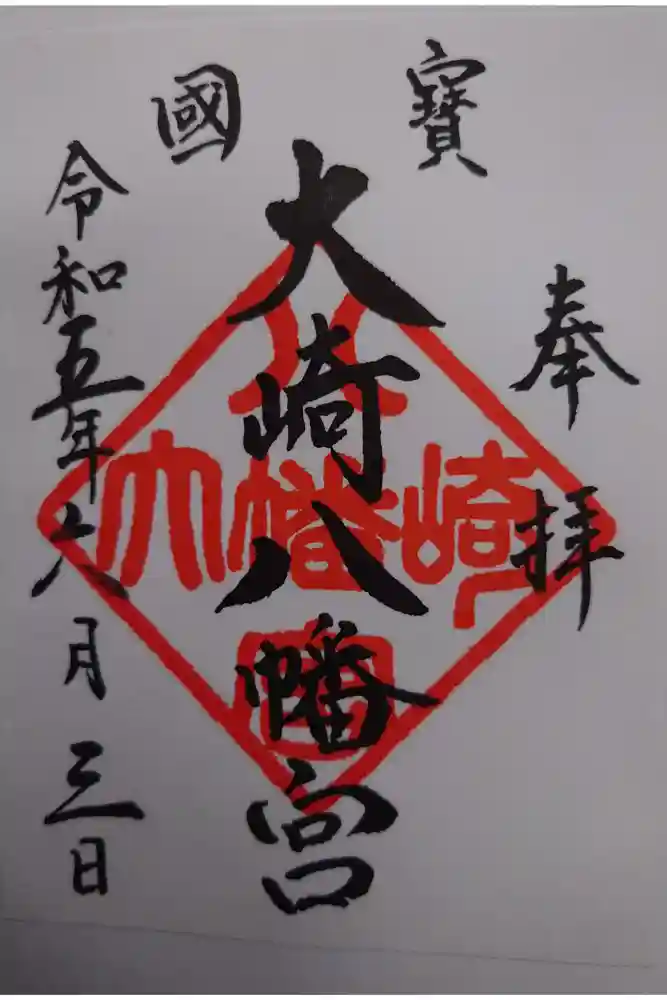 寶國
奉拝
大崎八幡宮
令和五年六月三日
大崎八幡宮